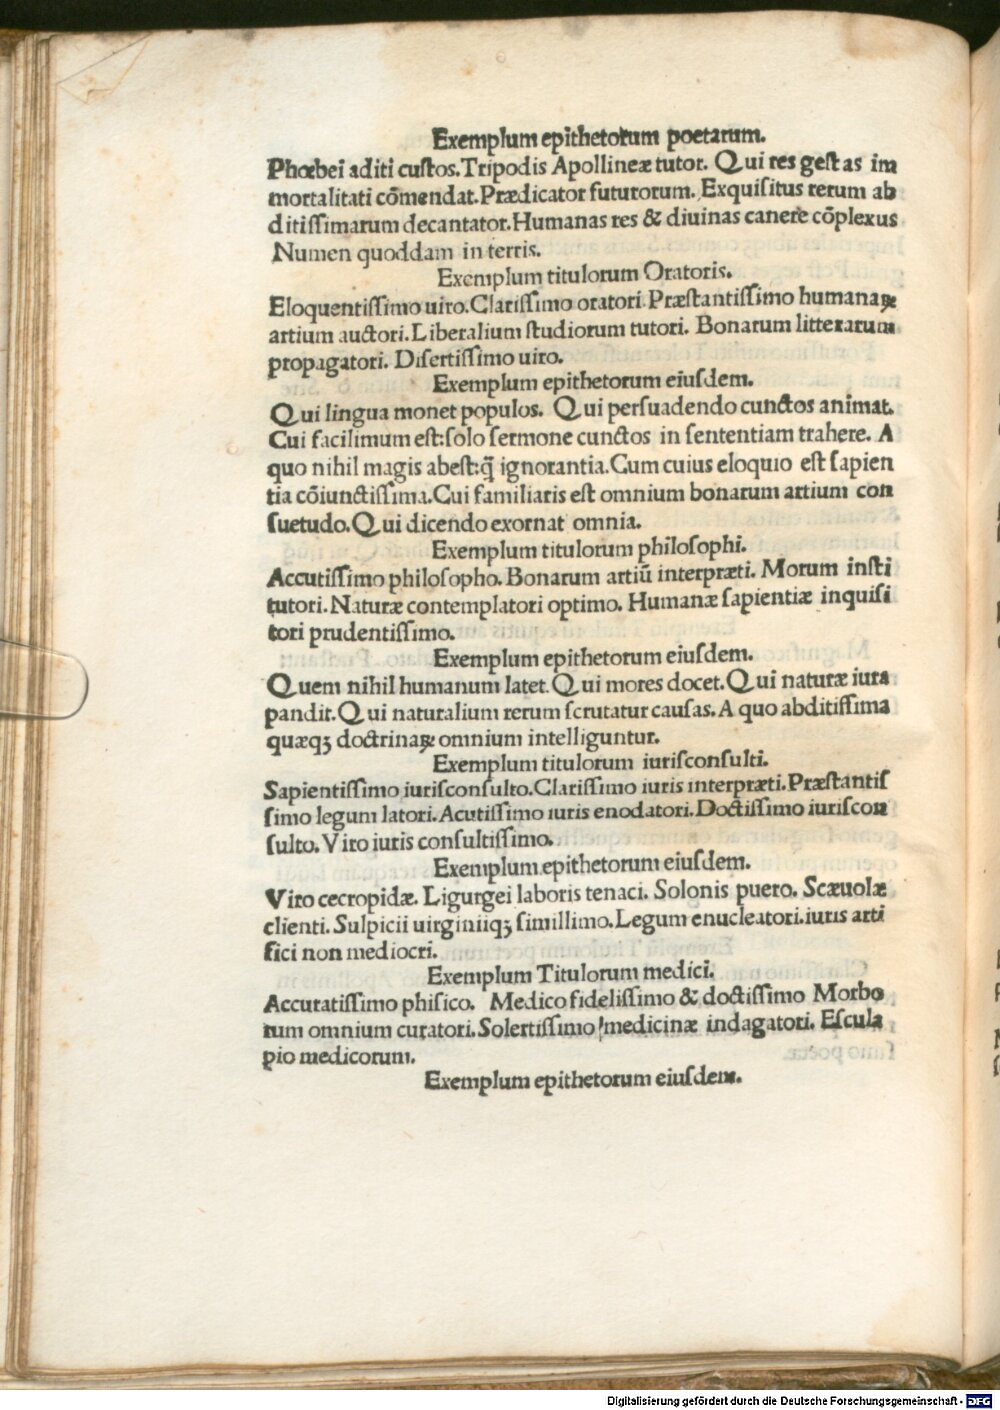 Exemplum epithetorum poetarum.
Phœbei aditi cuſtos. Tripodis Apollineæ tutor. Qui res geſtas im
mortalitati cõmendat. Prædicator futurorum. Exquiſitus rerum ab
ditiſſimarum decantator. Humanas res & diuinas canere cõplexus
Numen quoddam in terris.
Exemplum titulorum Oratoris.
Eloquentiſſimo uiro. Clariſſimo oratori. Præſtantiſſimo humanaꝝ
artium auctori. Liberalium ſtudiorum tutori. Bonarum litterarum
propagatori. Diſertiſſimo uiro.
Exemplum epithetorum eiuſdem.
Qui lingua monet populos. Qui perſuadendo cunctos animat.
Cui facilimum eſt: ſolo ſermone cunctos in ſententiam trahere. A
quo nihil magis abeſt: q̃ ignorantia. Cum cuius eloquio eſt ſapien
tia cõiunctiſſima. Cui familiaris eſt omnium bonarum artium con
ſuetudo. Qui dicendo exornat omnia.
Exemplum titulorum philoſophi.
Accutiſſimo philoſopho. Bonarum artiũ interpræti. Morum inſti
tutori. Naturæ contemplatori optimo. Humanæ ſapientiæ inquiſi
tori prudentiſſimo.
Exemplum epithetorum eiuſdem.
Quem nihil humanum latet. Qui mores docet. Qui naturæ iura
pandit. Qui naturalium rerum ſcrutatur cauſas. A quo abditiſſima
quæqꝫ doctrinaꝝ omnium intelliguntur.
Exemplum titulorum iuriſconſulti.
Sapientiſſimo iuriſconſulto. Clariſſimo iuris interpræti. Præſtantiſ
ſimo legum latori. Acutiſſimo iuris enodatori. Doctiſſimo iuriſcon
ſulto. Viro iuris conſultiſſimo.
Exemplum epithetorum eiuſdem.
Viro cecropidæ. Ligurgei laboris tenaci. Solonis puero. Scæuolæ
clienti. Sulpicii uirginiiqꝫ ſimillimo. Legum enucleatori. iuris arti
fici non mediocri.
Exemplum Titulorum medici.
Accuratiſſimo phiſico. Medico fideliſſimo & doctiſſimo Morbo
rum omnium curatori. Solertiſſimo medicinæ indagatori. Eſcula
pio medicorum.
Exemplum epithetorum eiuſdem.
Digitalisierung gefördert durch die Deutsche Forschungsgemeinschaft - DFG